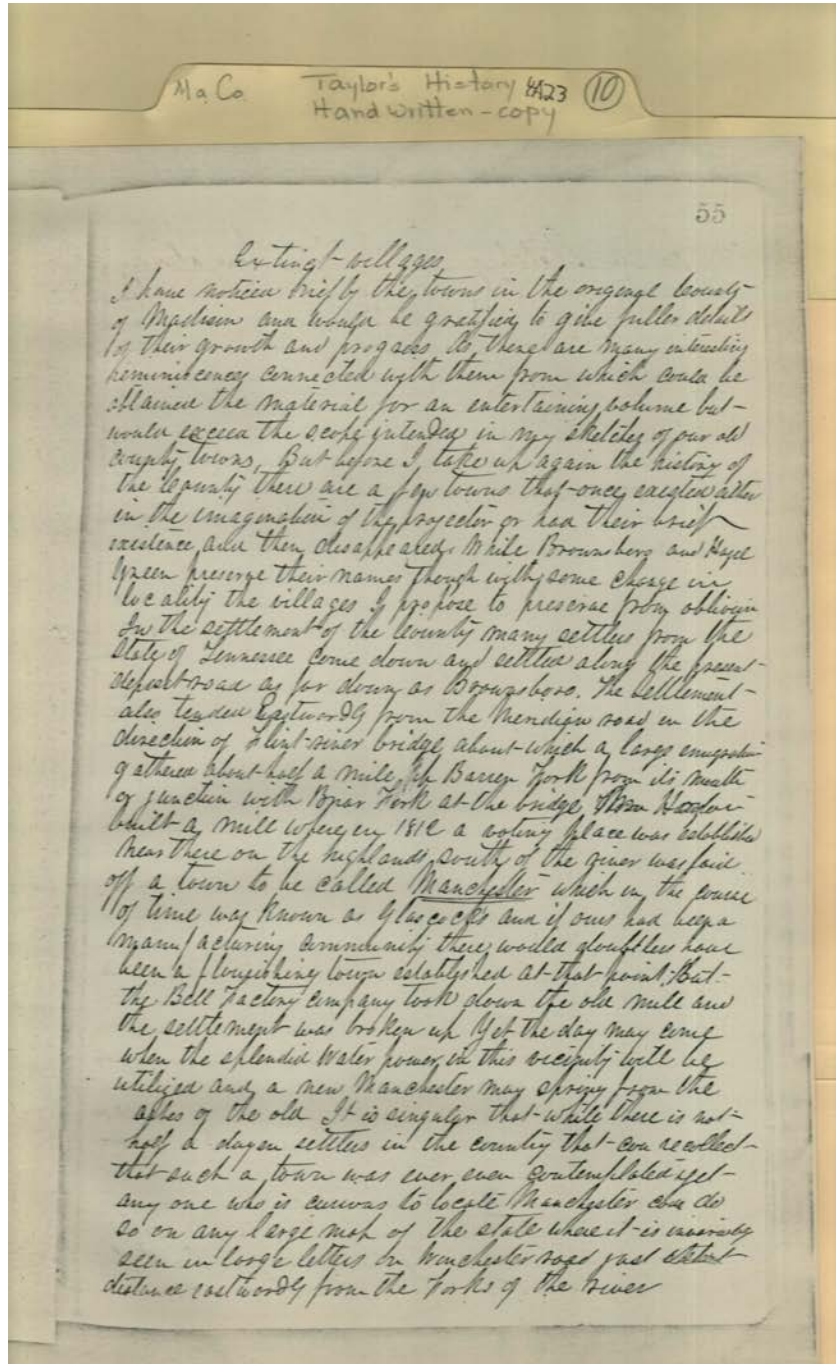 Ma Co. Taylor's History 4A23 10
Hand written - copy
55
Extinct villages
I have noticed briefly the towns in the original County
of Madison and would be gratified to give fuller details
of their growth and progress As there are many interesting
reminiscences connected with them from which could be
obtained the material for an entertaining volume but
would exceed the scope intended in my sketches of our old
county towns, But before I take up again the history of
the County there are a few towns that once existed either
in the imagination of the projector or had their brief
existence and then disappeared. While Brownsboro and Hazel
Green preserve their names though with some change in
locality the villages I propose to preserve from oblivion
In the settlement of the County many settlers from the
State of Tennessee come down and settled along the present
deposit road as far down as Brownsboro. The settlement
also tended Eastwardly from the Meridian road in the
direction of Flint river bridge about which a large emigration
gathered about half a mile up Barren Fork from its mouth
or junction with Briar Fork at the bridge
built a mill where in 1812 a voting place was established
near there on the highlands south of the river was laid
off a town to be called Manchester which in the course
of time was known as Glascocks and if ours had been a
manufacturing community there would doubtless have
been a flourishing town established at that point. But
the Bell Factory Company took down the old mill and
the settlement was broken up Yet the day may come
when the splendid Water power in this vicinity will be
utilized and a new Manchester may spring from the
ashes of the old It is singular that while there is not
half a dozen settlers in the country that can recollect
that such a town was ever even contemplated yet
any one who is curious to locate Manchester can do
so on any large map of the state where it is invariably
seen in large letters on Winchester road just
distance eastwardly from the Forks of the river